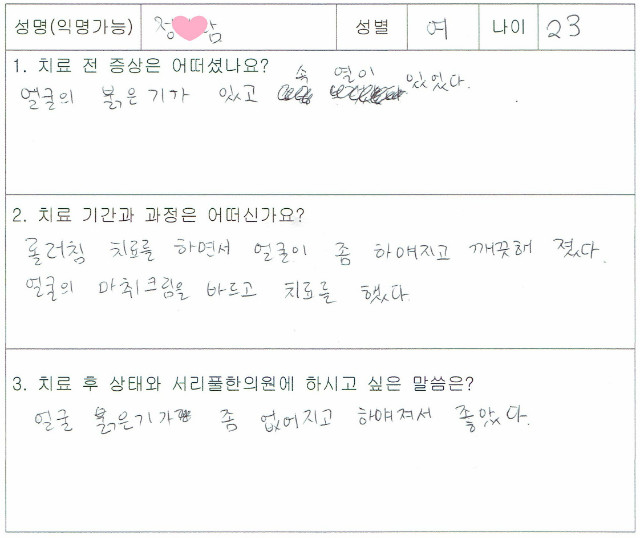 성명(익명가능) 정 람 성별 여 나이 23
1. 치료 전 증상은 어떠셨나요?
얼굴의 붉은기가 있고 속 열이 있었다.
2. 치료 기간과 과정은 어떠신가요?
롤러침 치료를 하면서 얼굴이 좀 하얘지고 깨끗해 졌다.
얼굴의 마취크림을 바르고 치료를 했다.
3. 치료 후 상태와 서리풀한의원에 하시고 싶은 말씀은?
얼굴 붉은기가 좀 없어지고 하얘져서 좋았다.